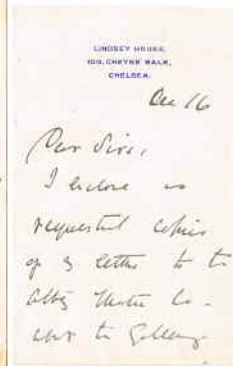 LINDSEY HOUSE,
100, CHEYNE WALK,
CHELSEA.
Dec 16
Dear Sirs,
I enclose as
requested copies
of 3 letters to the
Abbey Theatre Co -
the Gallery